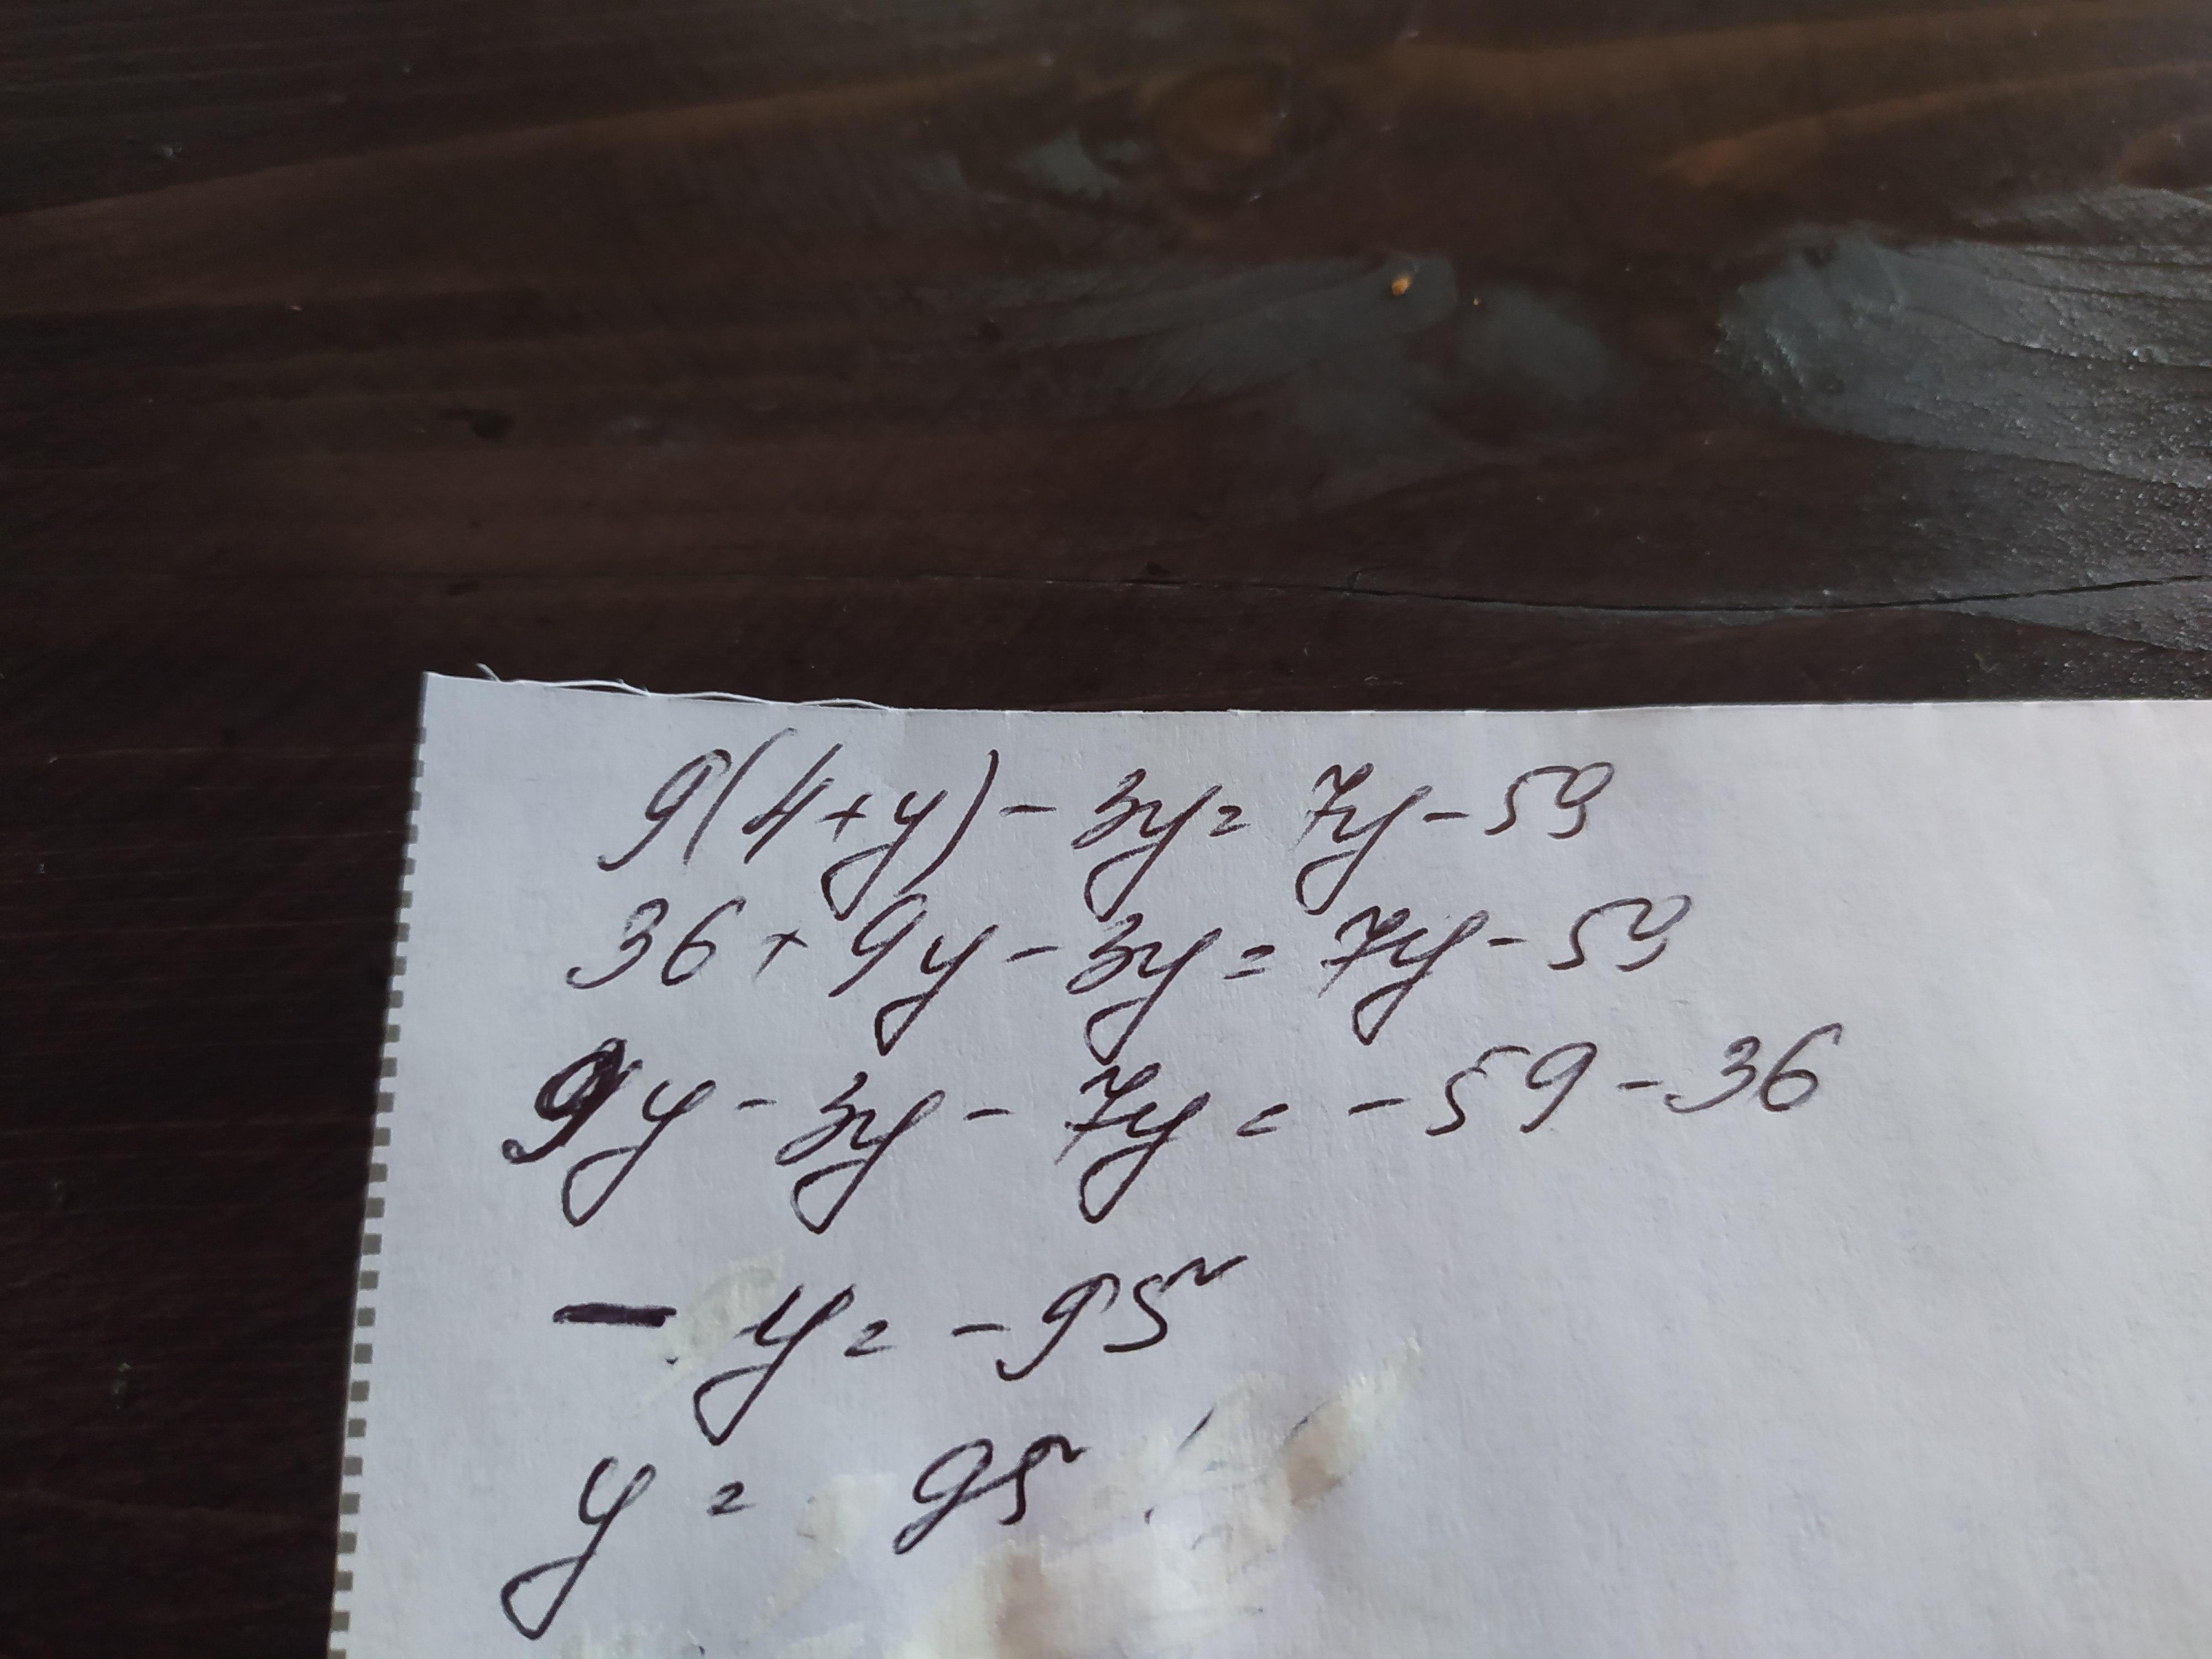 9(4+y)-3y=7y-59
36+9y-3y=7y-59
9y-3y-7y=-59-36
-y=-95
y=95